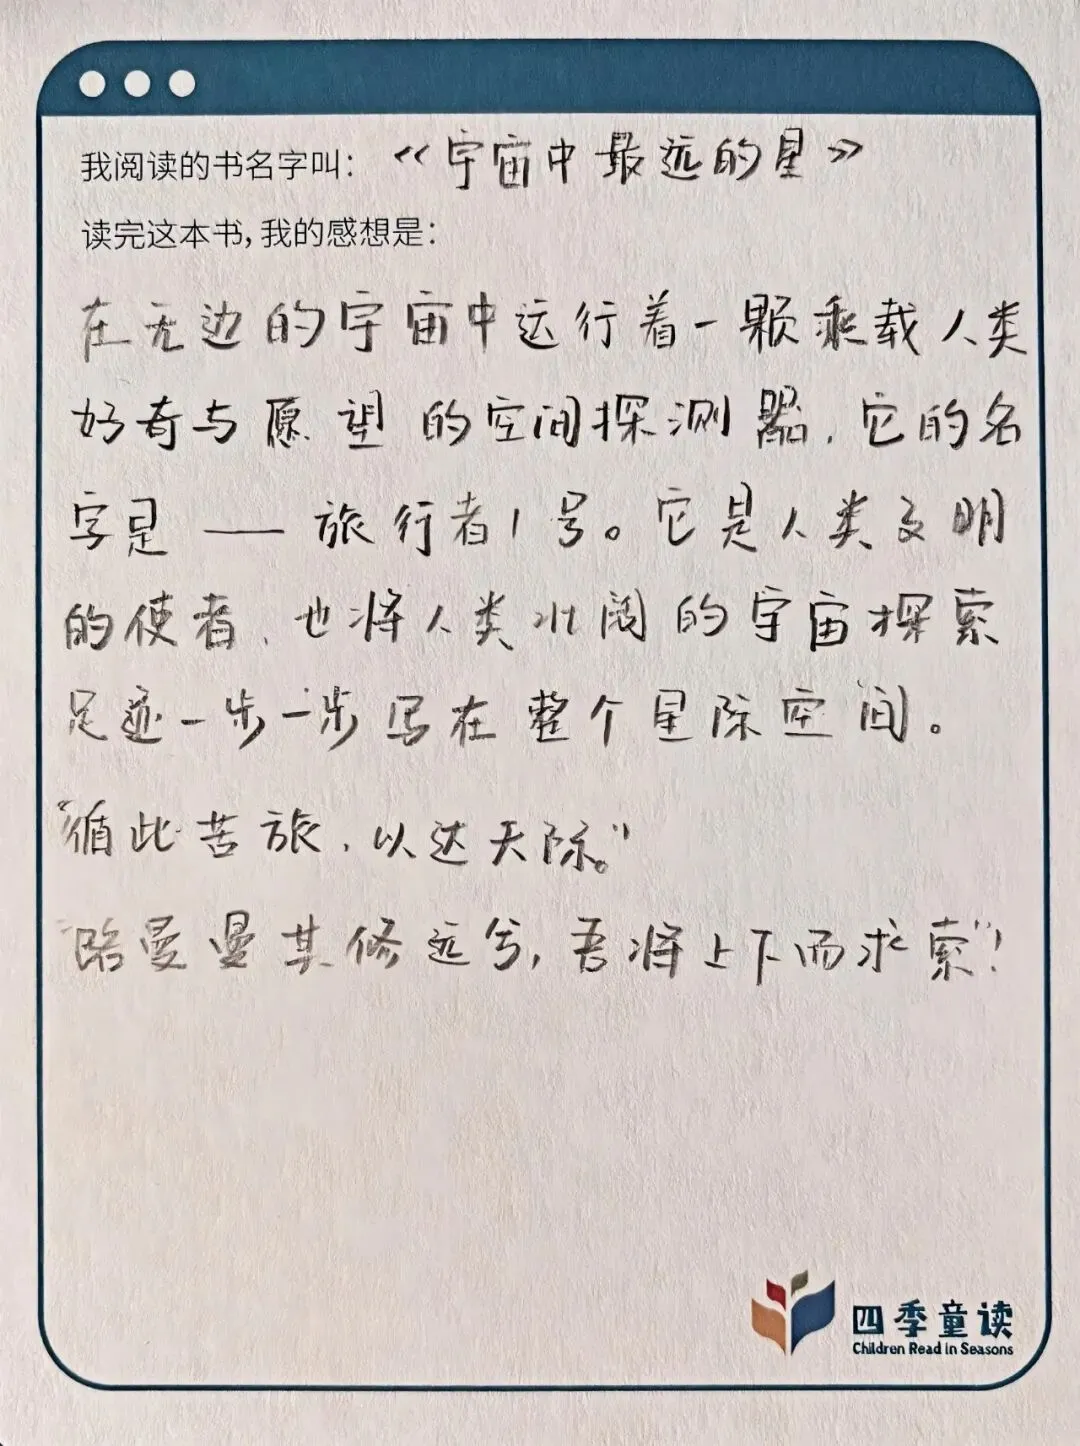 我阅读的书名字叫：《宇宙中最远的星》
读完这本书，我的感想是：
在无边的宇宙中运行着一颗乘载人类
好奇与愿望的空间探测器，它的名
字是——旅行者1号。它是人类文明
的使者，也将人类壮阔的宇宙探索
足迹一步一步写在整个星际空间。
“循此苦旅，以达天际。”
“路曼曼其修远兮，吾将上下而求索”！
四季童读
Children Read in Seasons